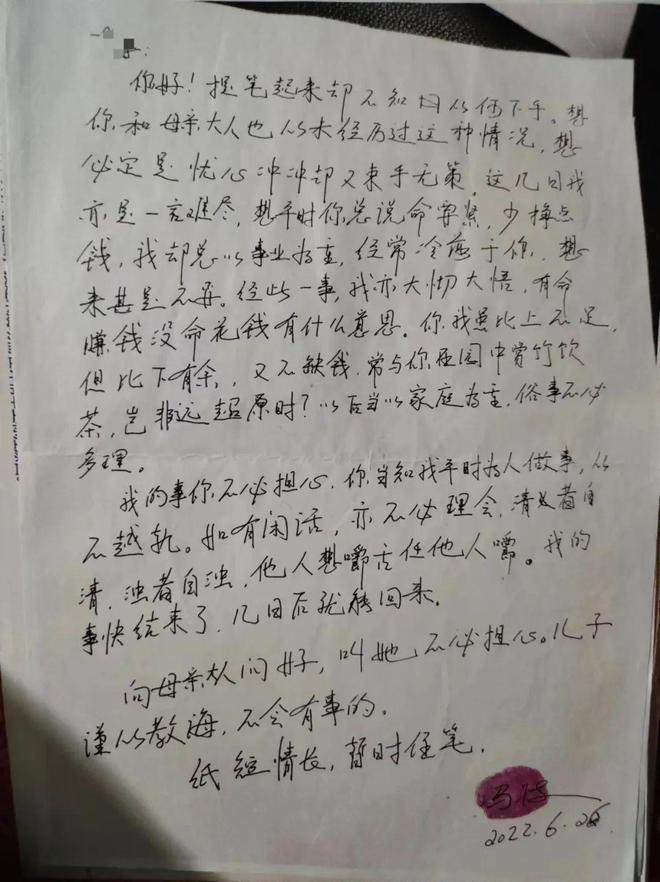 你好！提笔起来却不知从何下手。想
你和母亲大人也从未经历过这种情况，想
必定是忧心冲冲却又束手无策，这几日我
亦是一言难尽，想平时你总说命要紧，少挣点
钱，我却总以事业为重，经常冷落于你，想
来甚是不再。经此一事，我亦大切大悟，有命
赚钱没命花钱有什么意思。你我虽比上不足，
但比下有余，又不缺钱，常与你在园中赏竹饮
茶，岂非远超原时？以后当以家庭为重，俗事不必
多理。
我的事你不必担心，你当知我平时为人做事，从
不越轨。如有闲话，亦不必理会，清者自
清，浊者自浊，他人想嚼舌任他人嚼。我的
事快结束了，几日后就能回来。
向母亲大人问好，叫她不必担心。儿子
谨从教诲，不会有事的。
纸短情长，暂时住笔。
2022.6.26